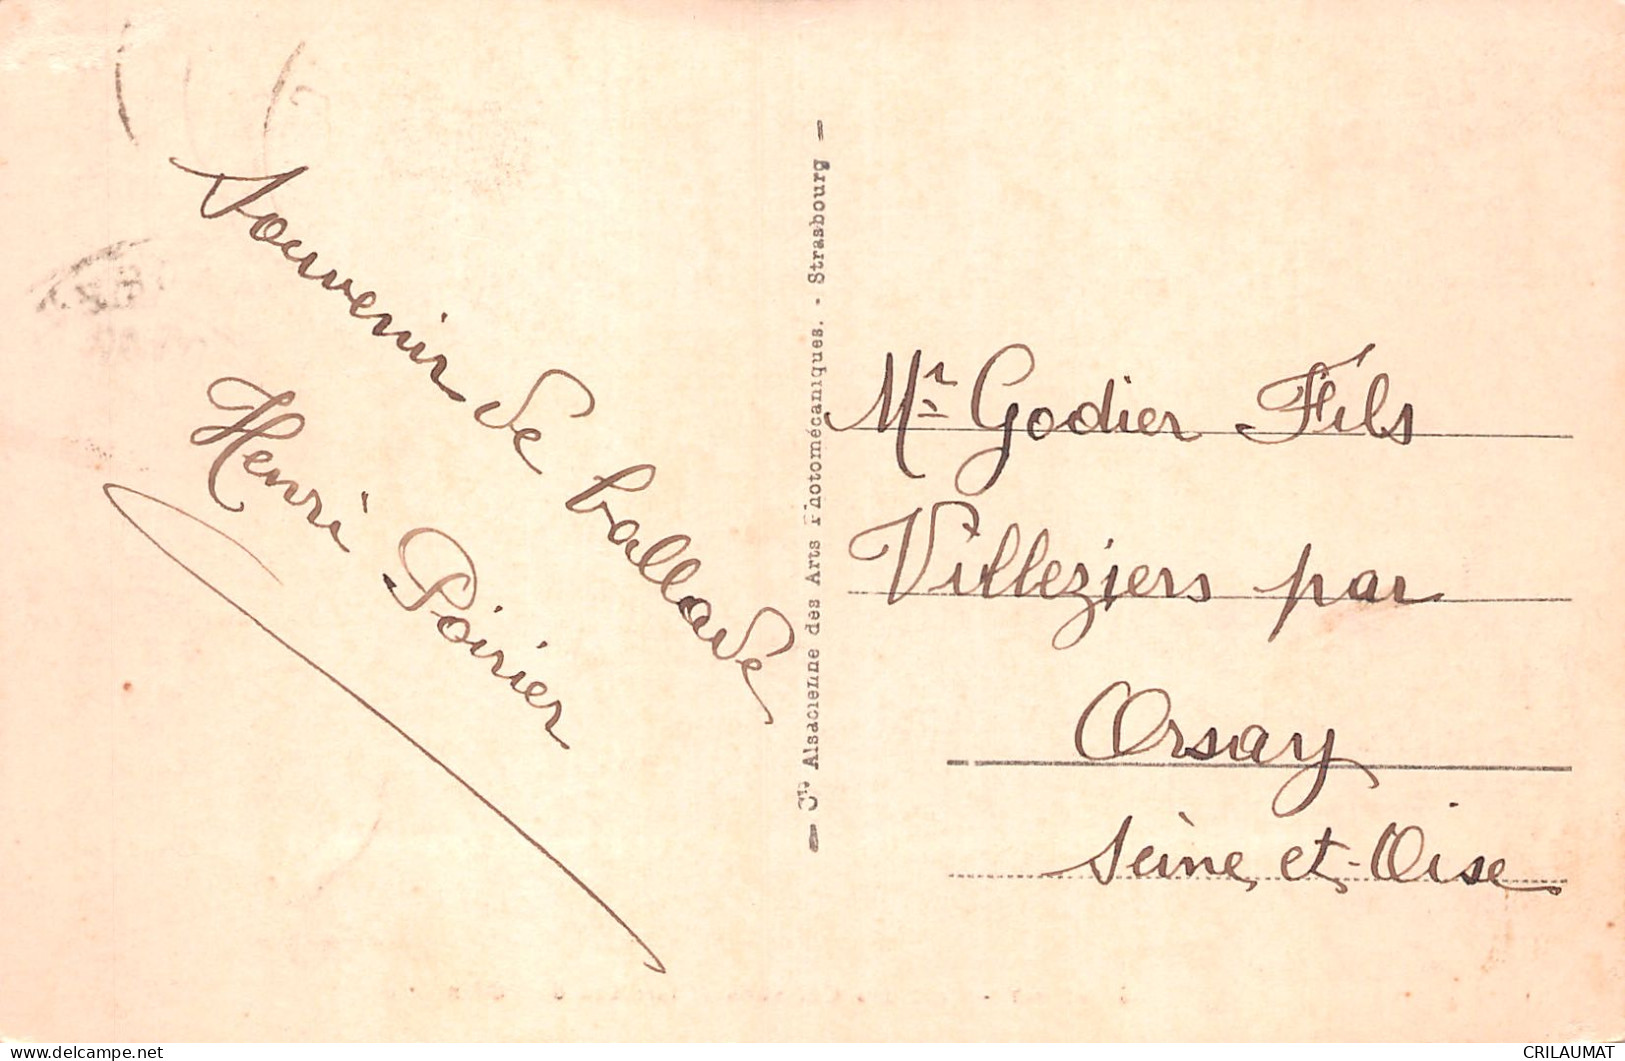 Souvenir de ballade
Henri Poirier
— Cie Alsacienne des Arts Photomécaniques. - Strasbourg —
Mr Godier Fils
Villeziers par
Orsay
Seine et-Oise
CRILAUMAT